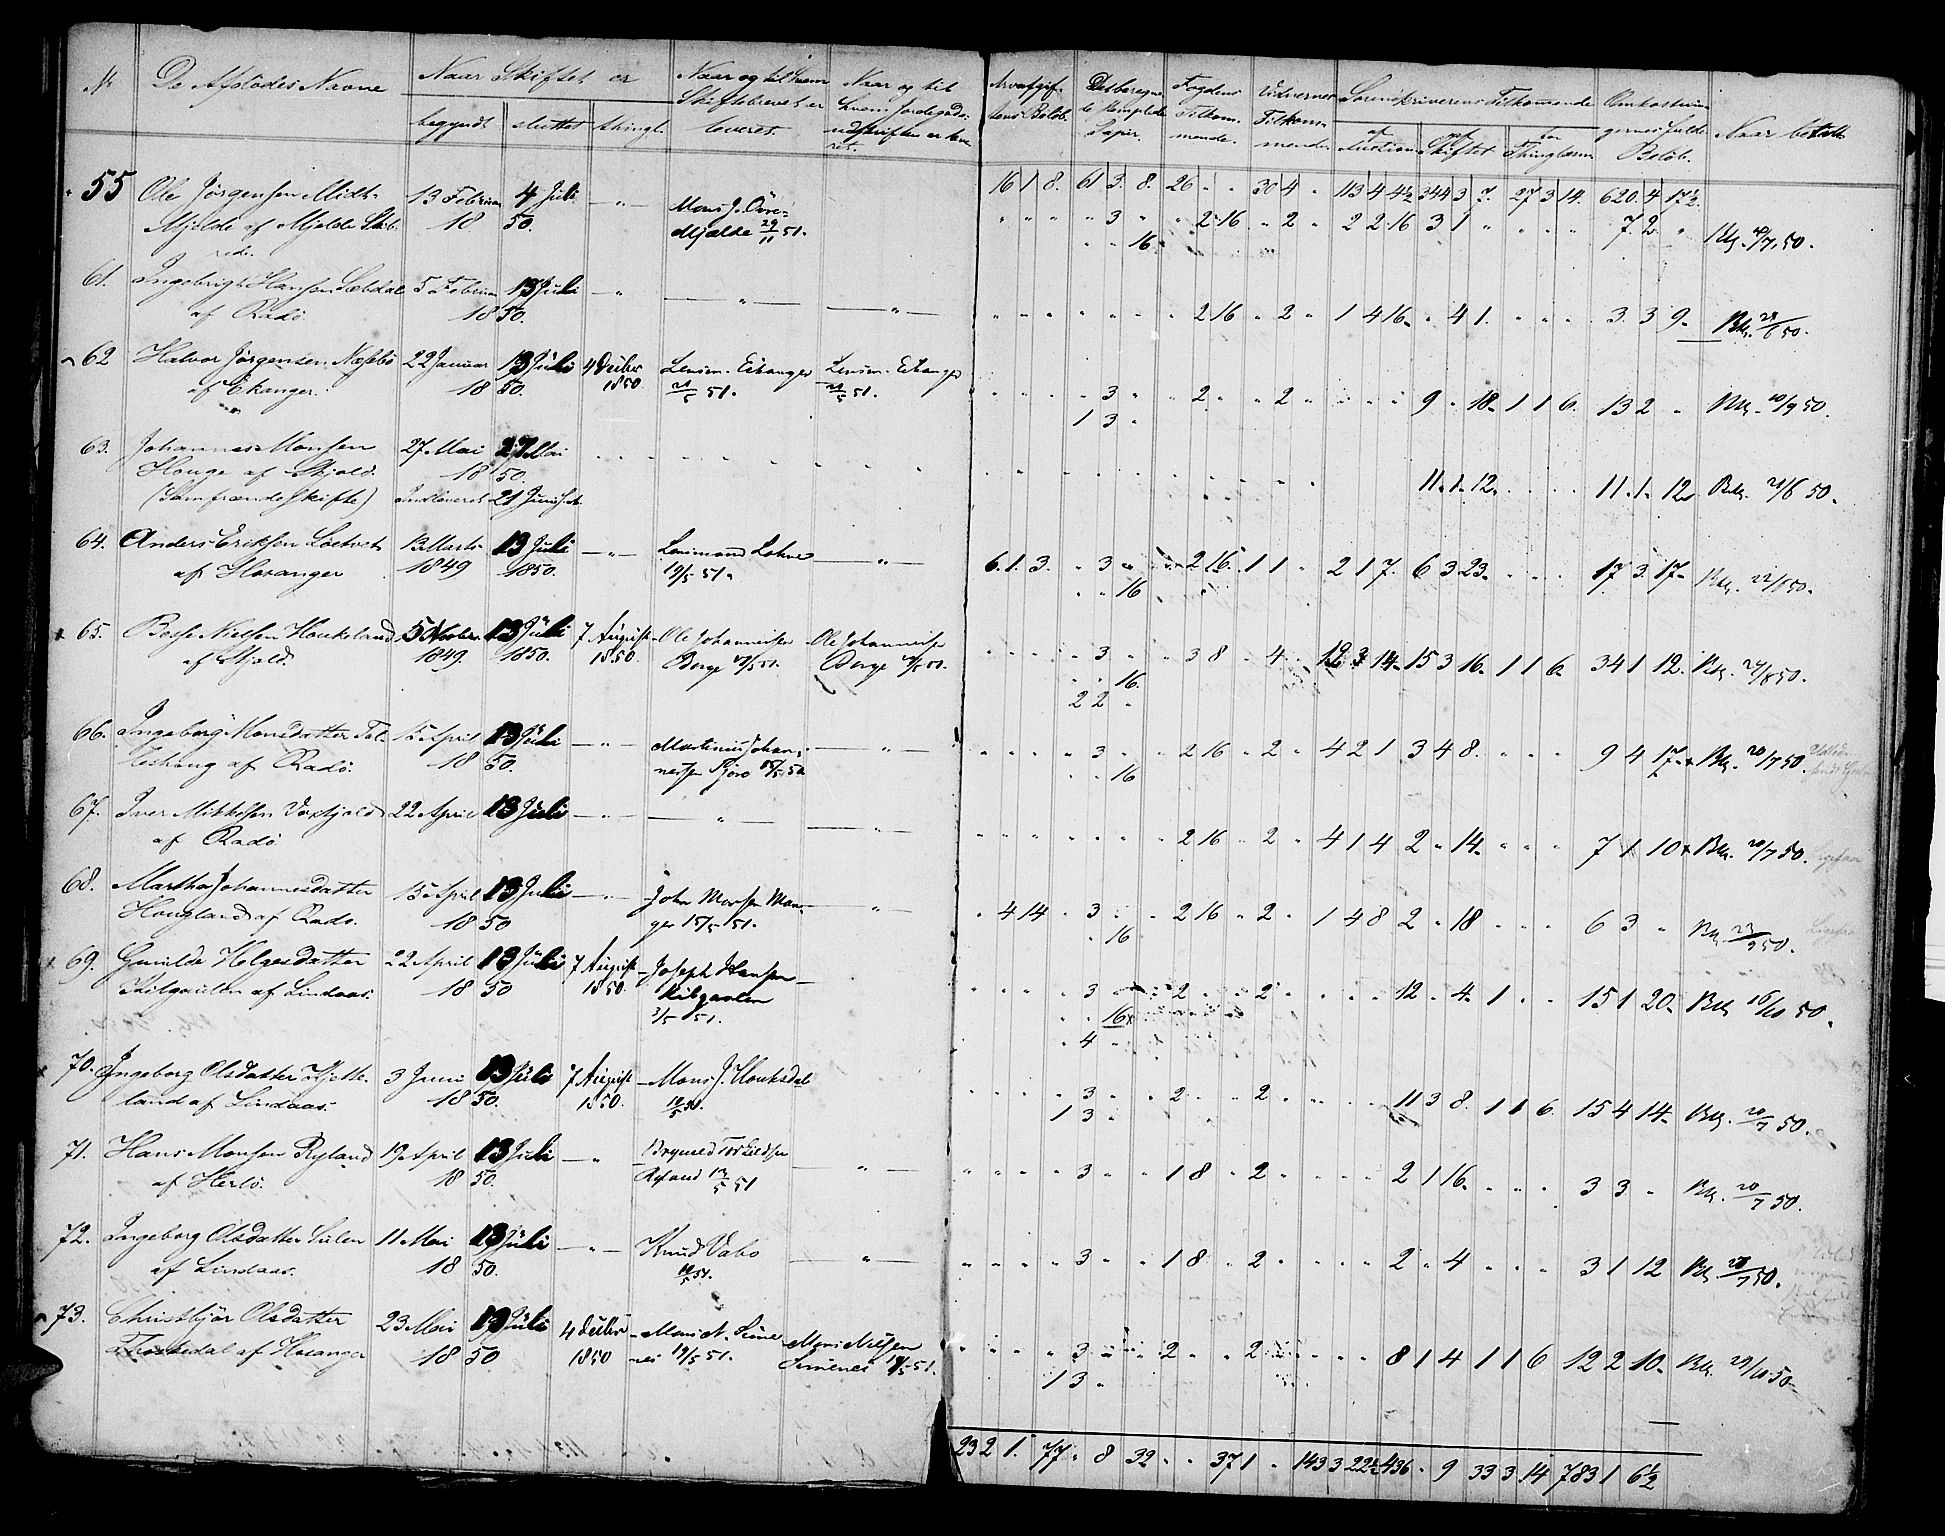 Nr De Afdödes Navne Naar Skiftet er Naar og til hvem Skiftebrevet er leveret. Naar og til hvem Jordegods-udskriften er leveret.
begyndt sluttet thingl.
Arveafgiftens Beløb. Det beregnede stemplede Papir. Fogdens Tilkommende. Vidnernes Tilkommende Sorenskriverens Tilkommende Omkostningernes fulde Beløb. Naar betalt
af Auction af Skiftet for Thinglæsn
16 1 8. 61 3. 8. 26 " " 30 4 " 113 4 4½ 344 3 7. 27 3 14. 620. 4 17½.
55 Ole Jörgensen Midt- 13 Februar 4 Juli — " — Mons J. Övre-
Mjelde af Mjelde Skib- 18 50. Mjelde 29/11 51. " " " " 3 " " 2 16 " 2 " 2 2 16 3 1 " " " " 7. 2 " Btl. 20/7 50.
rede. " " 16
61. Ingebrigt Hansen Sæbdal 5 Februar 13 Juli — " — " — — " —
af Radö. 18 50. 2 16 " 2 " 1 4 16 " 4 1. " " " 3. 3 9. Btl. 28/6 50.
62 Halvor Jörgensen Næsbö 22 Januar 13 Juli 4 Decbr Lensm. Eikanger Lensm. Eikanger
af Ekanger. 18 50. 1850. 21/5 51. 21/5 51. " 3 " " 2. " " 2 " " " " 9 " 18 1 1 6. 13 2 " Btl. 10/9 50.
1 3 "
63. Johannes Monsen 27 Mai 27 Mai
Houge af Skjold. 18 50. 11. 1. 12. 11. 1. 12. Btl. 21/6 50.
(Samfrændeskifte) Indleveret 21 Juni s. A.
64. Anders Eriksen Löetvet 13 Marts 13 Juli — " — Lensmand Lohne — " —
af Hosanger 1849 1850. 19/5 51. 6. 1. 3. " 3 " " 2 16. 1 1 " 2 1 7. 6 3 23 " " " 17. 3. 17 Btl. 22/8 50.
" " 16
65. Börge Nielsen Houkeland 5 Novbr. 13 Juli 7 August Ole Johannesen Ole Johannesen
af Skjold. 1849. 1850. 1850. Borge 19/5 51. Borge 19/5 51. " 3 " " 3 8 " 4 " 12 3 14 15 3 16 1 1 6 34 1 12. Btl. 27/8 50.
" " 16.
2 2 "
66. Ingeborg Monsdatter Tol- 15 April 13 Juli — " — Martinus Johan- — " —
leshoug af Radö. 18 50. nessen Pjöro 15/5 51 " 3 " " 2 16 " 2 " 4 2 1 3 4 8. " " " 9 4 17 Btl. 20/7 50.
" " 16
67. Iver Mikkelsen Voxtjold 22 April 13 Juli — " — " — — " —
af Radö 2 16 " 2 " 4 1 4 2 " 14. " " " 7 1 10 Btl. 20/7 50.
68. Martha Johannesdatter 15 April 13 Juli — " — John Monsen Man- — " —
Hougland af Radö. 18 50 ger 15/5 51. " 4 14 " 3 " " 2 16 " 2 " 1 4 8 2 " 18 " " " 6 3 " Btl. 23/9 50.
" 16
69. Gunilde Helgesdatter 22 April 13 Juli 7 August Joseph Hansen —
Kilgaulen af Lindaas. 18 50 1850. Kilgaulen " 3 " " 2 " " 2 " " " " 12 " 4 1 " " 15 1 20 Btl 16/10 50.
3/5 51. " 16
" 4 "
70. Ingeborg Olsdatter Hjelte- 3 Juni 13 Juli 7 August Mons J. Houksdal
land af Lindaas. 18 50. 1850. " 3 " " 2 " " 2 " " " " 11 3 8. 1 1 6. 15 4 14 Btl. 20/7 50.
1 3 "
71. Hans Monsen Ryland 19 April 13 Juli — " Brynild Torkildsen
af Herlö. 18 50. Ryland 13/5 51 — " — " 3 " " 1 8 " 2 " " " " 2 1 16. " " " 3 3 " Btl. 20/7 50.
72. Ingeborg Olsdatter Sulen 11 Mai 13 Juli — " — Knud Vabo — " —
af Lindaas. 18 50. 19/5 51. " 3 " " 1 8 " 2 " " " " 2 " 4 " " " 3 1 12 Btl. 20/7 50.
73. Christbjör Olsdatter 23 Mai 13 Juli 4 Decbr Mons N. Sime- Mons Nielsen
Fhossedal af Hosanger 18 50 1850 nes 19/5 51. Simenes 19/5 51. " 3 " " 2 " " 2 " " " " 8 1 4 1 1 6 12 2 10 Btl. 29/10 50
1 3 "
23 2 1. 77 " 8 32 " " 37 1 " 143 3 22½ 436 " 9 33 3 14 783 1 6½